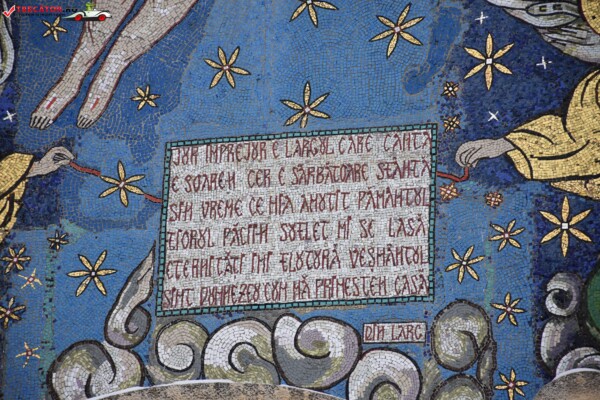 JUR IMPREJUR E LARGUL CARE CÂNTĂ
E SOARE-N CER E SĂRBĂTOARE SFÂNTĂ
ȘI-N VREME CE MI-A AMUȚIT PĂMÂNTUL
IZVORUL PĂCII-N SUFLET MI SE LASĂ
ETERNITĂȚI IMI FLUTURĂ VEȘMÂNTUL
SIMT DUMNEZEU CUM MĂ PRIMEȘTE-N CASĂ
DIN LARG